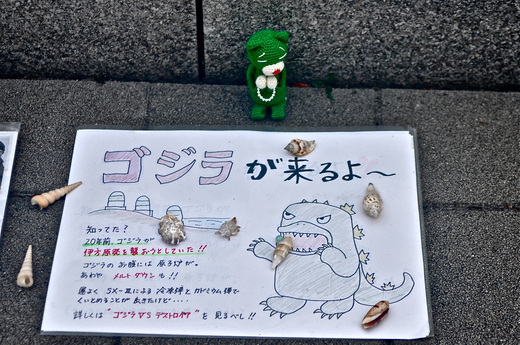 ゴジラが来るよ～
知ってた？
20年前、ゴジラが
伊方原発を襲おうとしていた!!
ゴジラのお腹には原子炉が。
あわや メルトダウンも!!
運よく SX-Ⅲによる冷凍弾とカドミウム弾で
くいとめることが出来たけど・・・・
詳しくは"ゴジラVSデストロイア"を見るべし!!